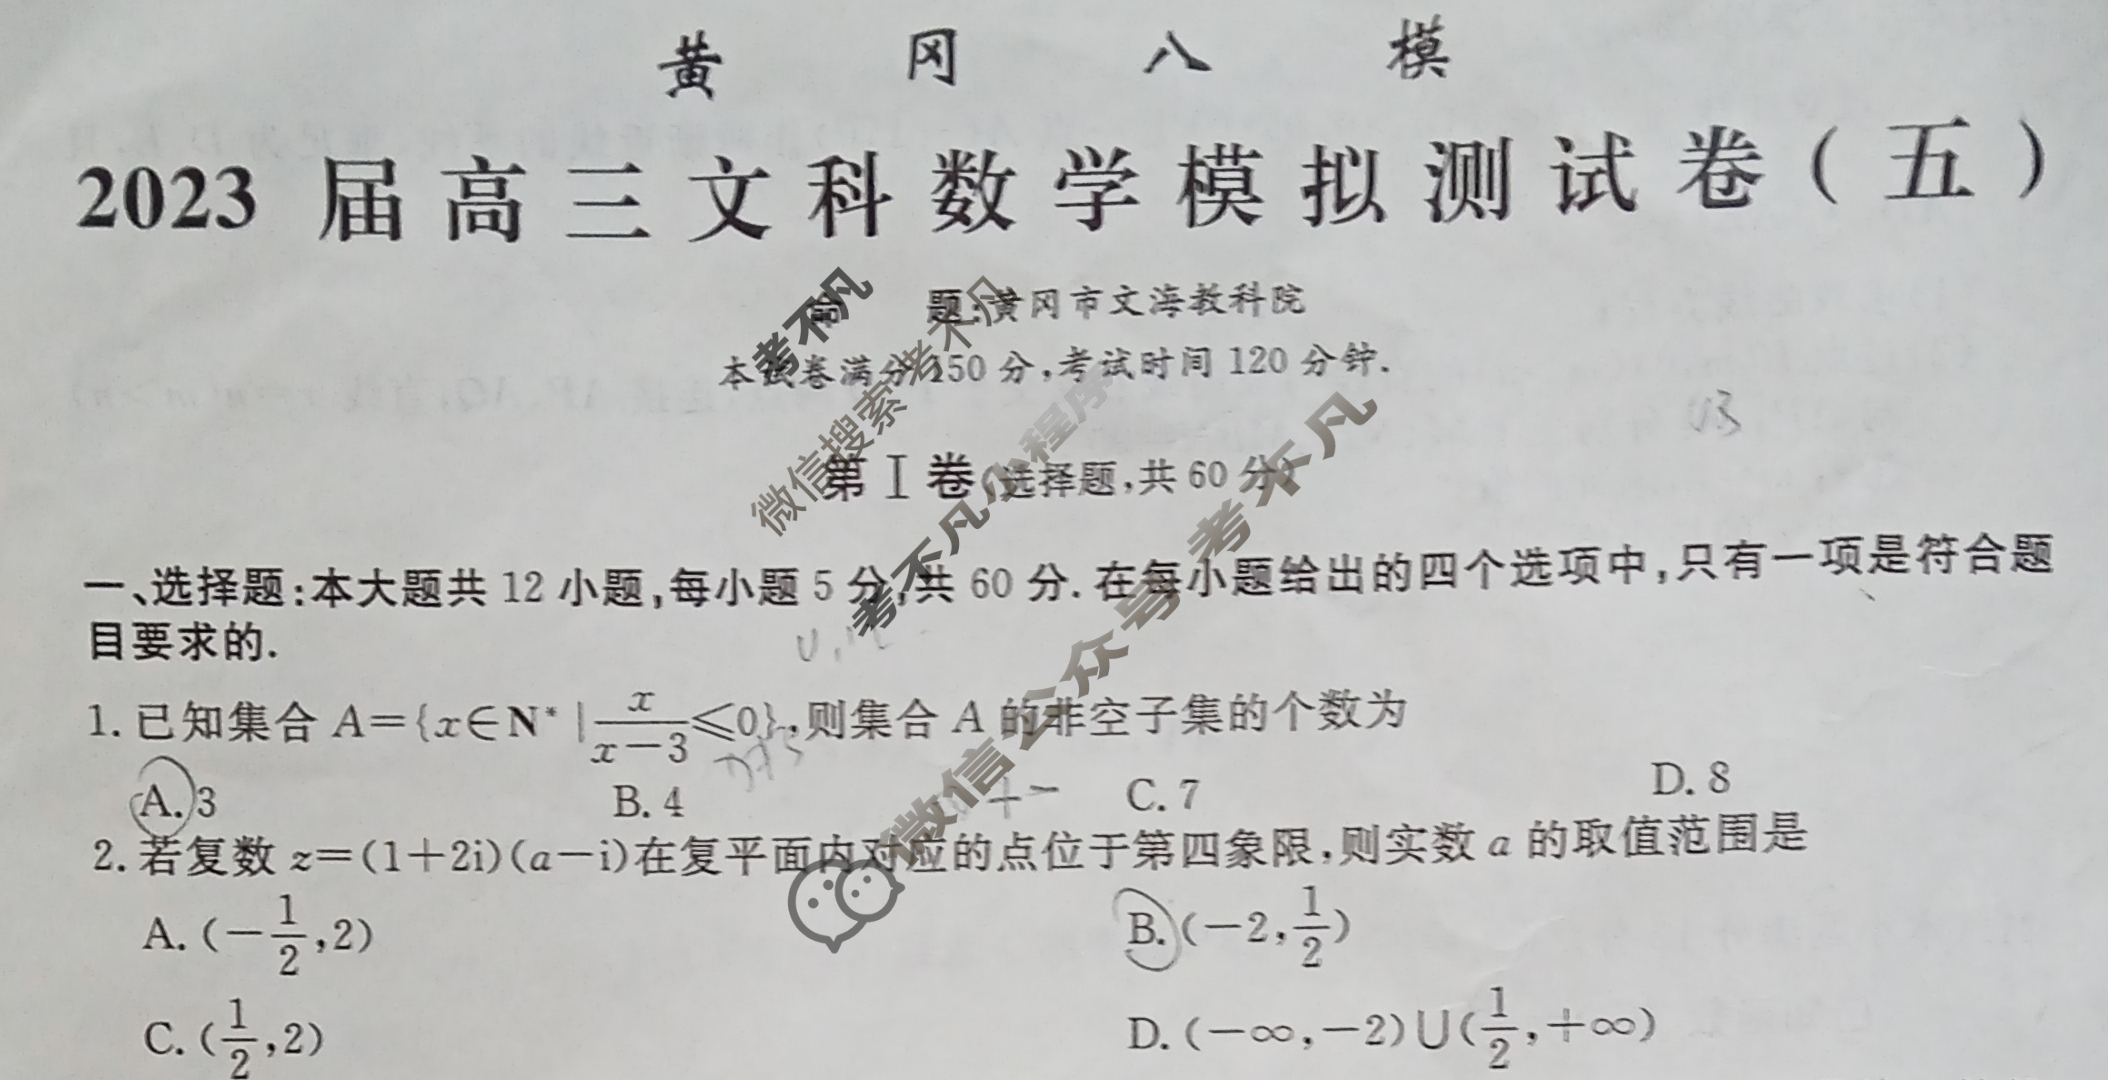 黄冈八模
2023届高三文科数学模拟测试卷(五)
命 题:黄冈市文海教科院
本试卷满分150分,考试时间120分钟.
第Ⅰ卷(选择题,共60分)
一、选择题:本大题共12小题,每小题5分,共60分.在每小题给出的四个选项中,只有一项是符合题
目要求的.
1.已知集合A={x∈N*|x/(x-3)≤0},则集合A的非空子集的个数为
A.3 B.4 C.7 D.8
2.若复数z=(1+2i)(a-i)在复平面内对应的点位于第四象限,则实数a的取值范围是
A.(-1/2,2) B.(-2,1/2)
C.(1/2,2) D.(-∞,-2)∪(1/2,+∞)
考不凡
微信搜索考不凡
考不凡小程序
微信公众号考不凡